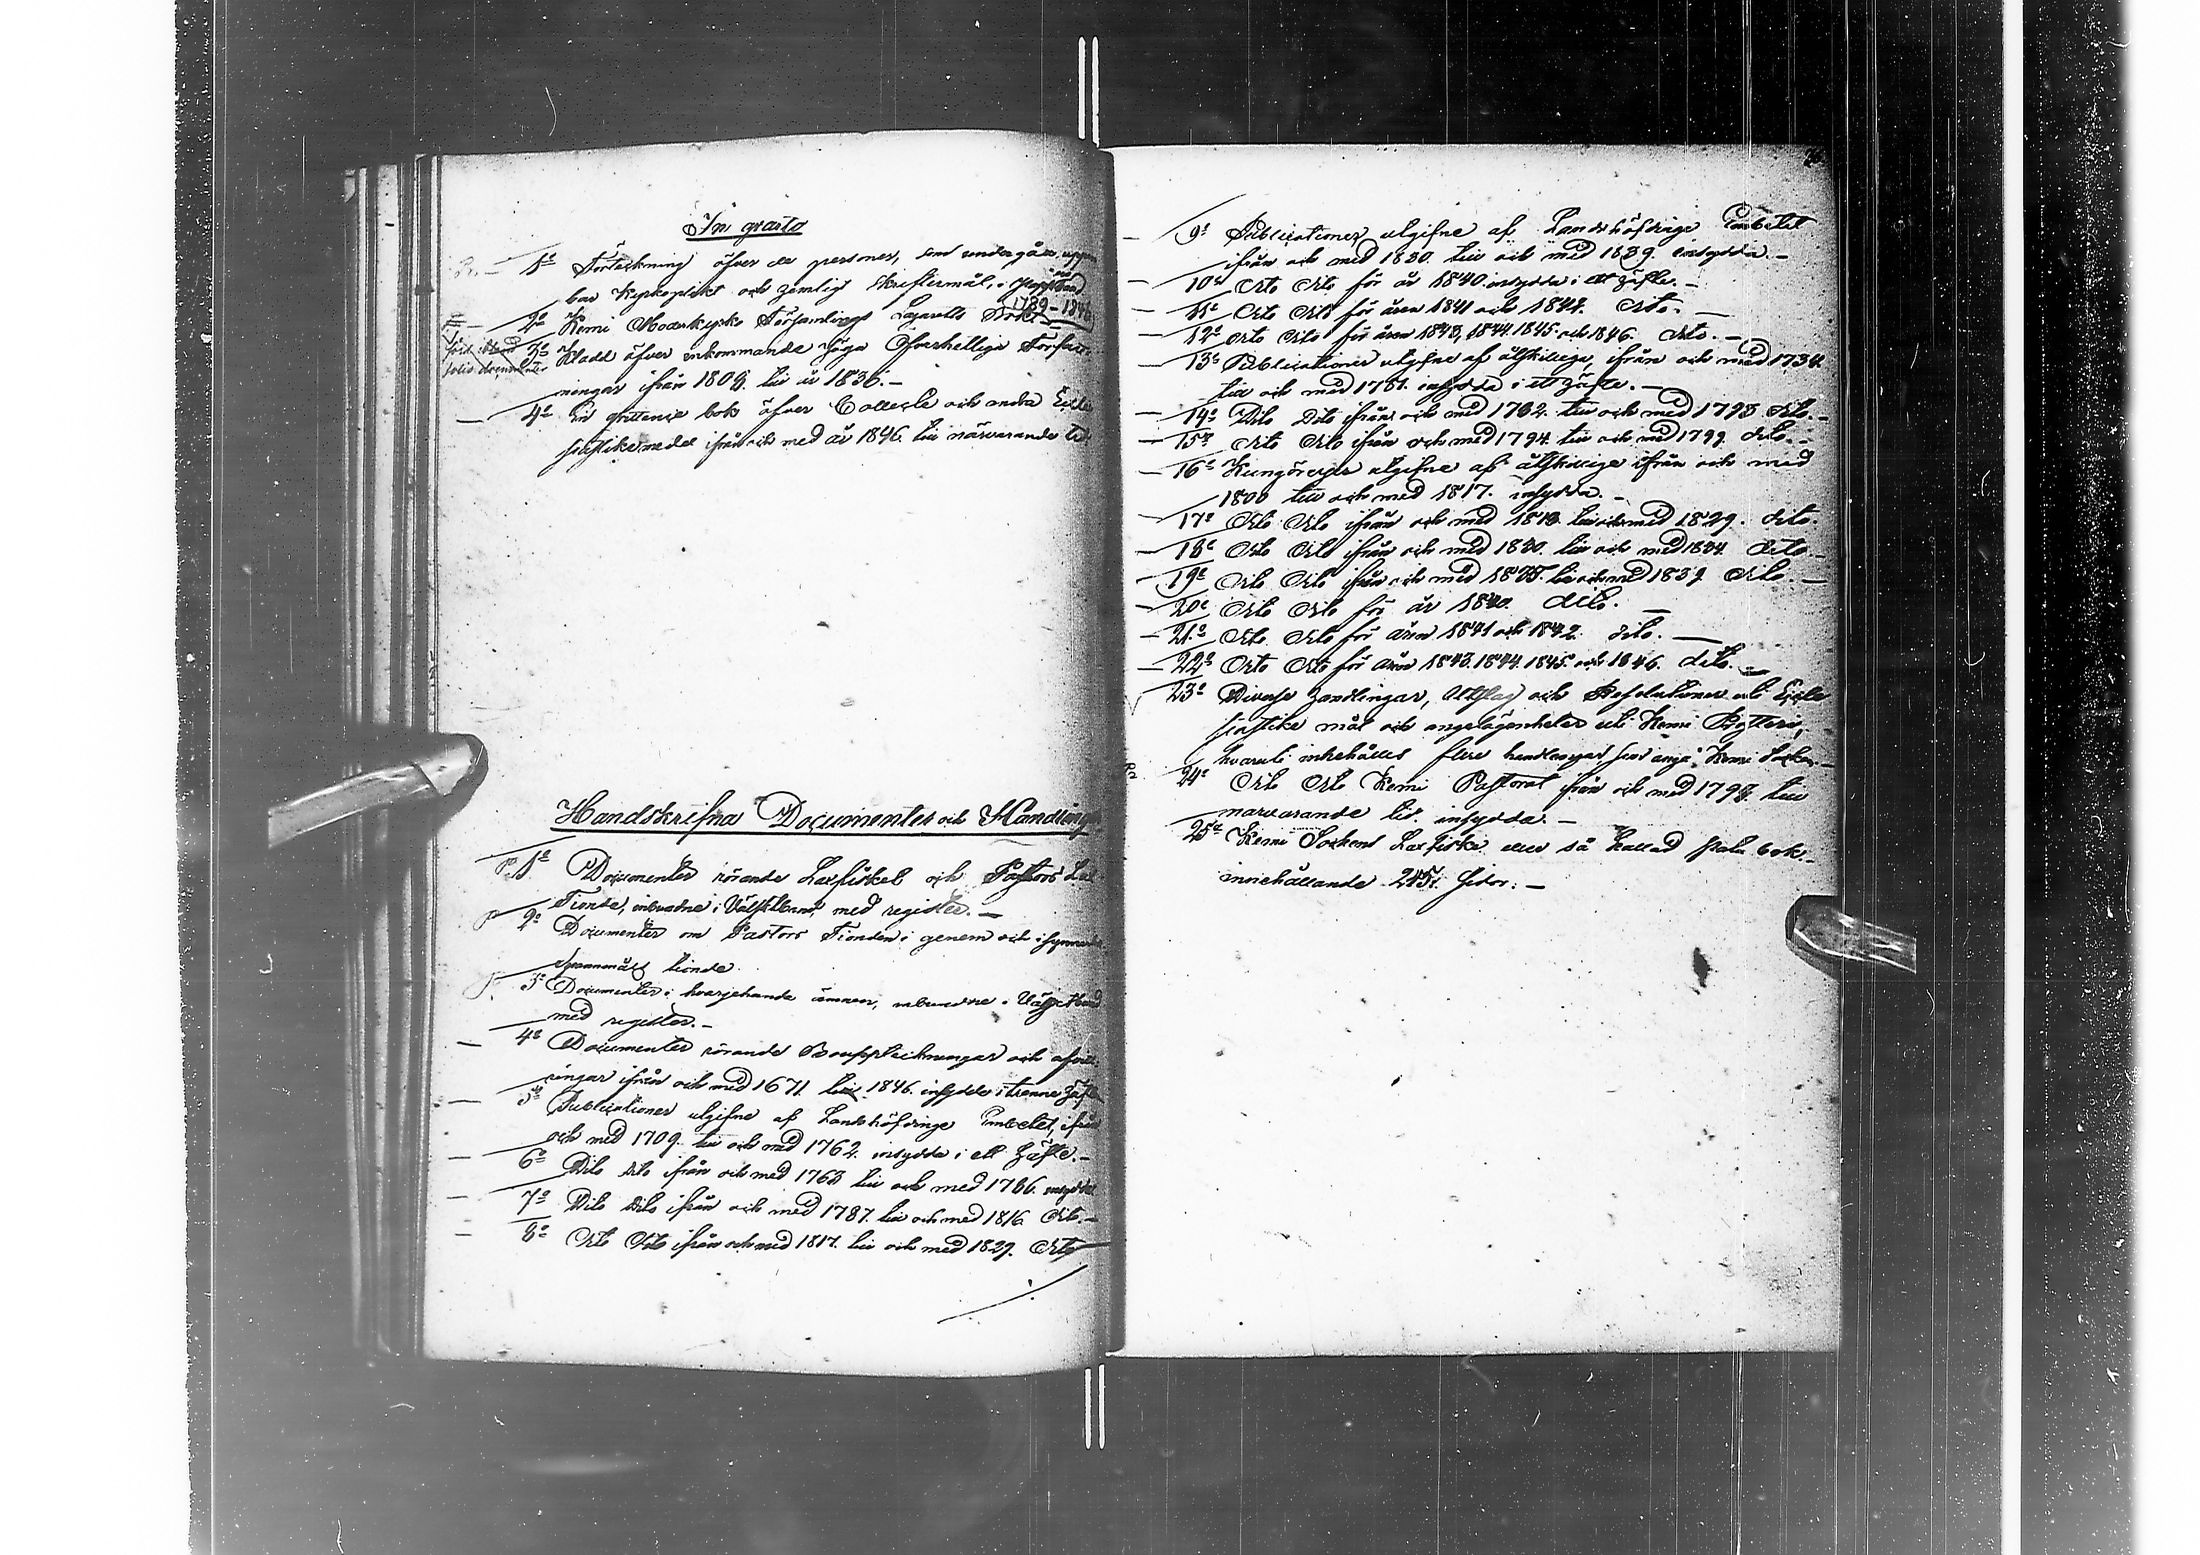 In qvarto
1o Förteckning öfver de personer, som undergått uppen
bar Kyrkoplikt och hemligt Skriftermål, i
1789-1846
2o Kemi Moderkyrko Församlings Lazaretts Bok. -
3o Kladd öfver inkommande Höga Öfverhetliga Författ-
ningar ifrån 1809. till år 1836. -
4o En qvittence bok öfver Collecte och andra Eccle
siastike medel ifrån och med år 1846. till närvarande tid
Handskrifna Documenter och Handlingar
1o Documenter rörande Laxfisket och Pastors Lax
Tionde, inbundne i Wälskt band med register. -
2o Documenter om Pastors Tionden i genem och i synnerhet
Spannmåls tionde.
3o Documenter i hvarjehanda ämnen, inbundne i Wälskt band
med register. -
4o Documenter rörande Bouppteckningar och
ningar ifrån och med 1671. till 1846. insydde i trenne Häften
5o Publicationer utgifne af Landshöfdinge Embetet, ifrån
och med 1709. till och med 1762. insydda i ett Häfte. -
6o Dito dito ifrån och med 1763 till och med 1786. insydda
7o Dito dito ifrån och med 1787. till och med 1816 dito. -
8o Dito Dito ifrån och med 1817. till och med 1829. Dito
9o Publicationer utgifne af Landshöfdinge Embetet
ifrån och med 1830. till och med 1839. insydda. -
10o Dito Dito för år 1840. insydda i ett Häfte. -
11o Dito Dito för åren 1841 och 1842. Dito. -
12o Dito Dito för åren 1843, 1844. 1845. och 1846. Dito. -
13o Publicationer utgifne af åtskillige, ifrån och med 1734.
till och med 1761. insydda i ett Häfte. -
14o Dito Dito ifrån och med 1762. till och med 1793 dito. -
15o Dito Dito ifrån och med 1794. till och med 1799. dito. -
16o Kungörelser utgifne af åtskillige ifrån och med
1800 till och med 1817. insydda. -
17o Dito Dito ifrån och med 1818. till och med 1829. dito.
18o Dito Dito ifrån och med 1830. till och med 1834. dito. -
19o Dito Dito ifrån och med 1835. till och med 1839 dito. -
20o Dito Dito för år 1840. dito. -
21o Dito Dito för åren 1841 och 1842. dito. -
22o Dito Dito för åren 1843. 1844. 1845. och 1846. dito. -
23o Diverse Handlingar, Utslag och Resolutioner uti Eccle
siastike mål och angelägenheter uti Kemi
hvaruti innehålles flere handlingar som angå Kemi Socken. -
24o Dito Dito Kemi Pastorat ifrån och med 1793. till
närvarande tid. insydda. -
25o Kemi Sockens Laxfiske eller så kallad Pata bok -
innehållande 245. sidor. -